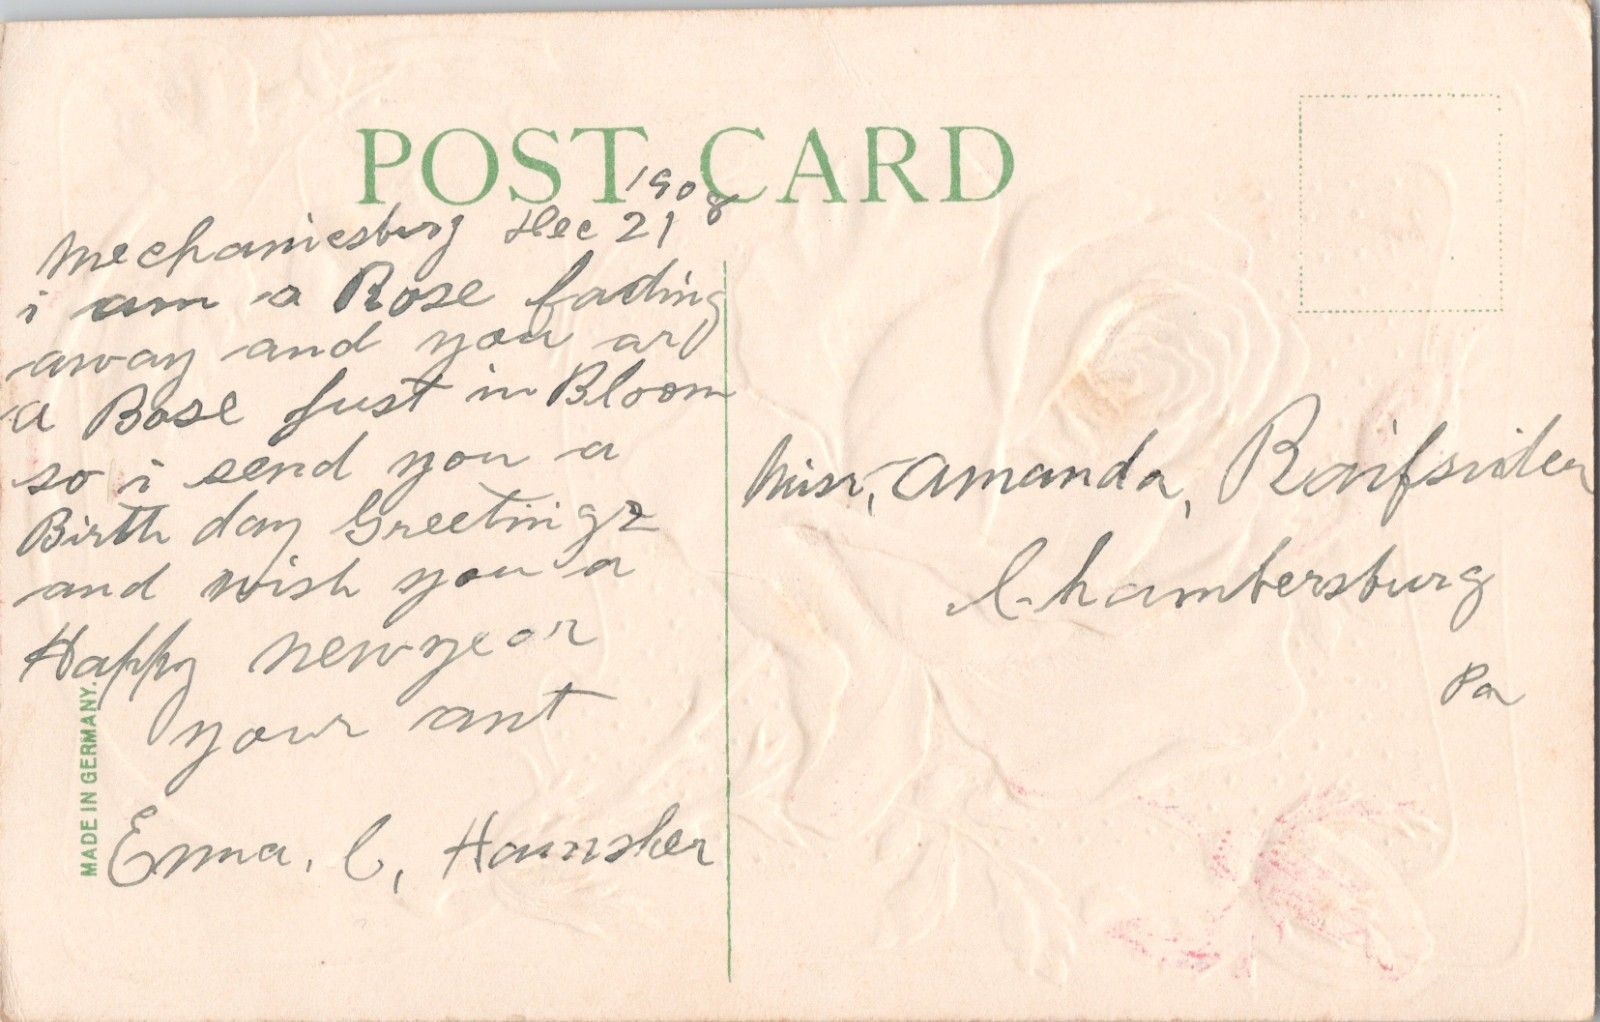 POST CARD
1908
Mechanicsburg Dec 21
i am a Rose fading
away and you ar
a Rose Just in Bloom
so i send you a
Birth day Greetings
and wish you a
Happy new year
your ant
Emma. C,
Miss, Amanda,
Chambersburg
Pa
MADE IN GERMANY.